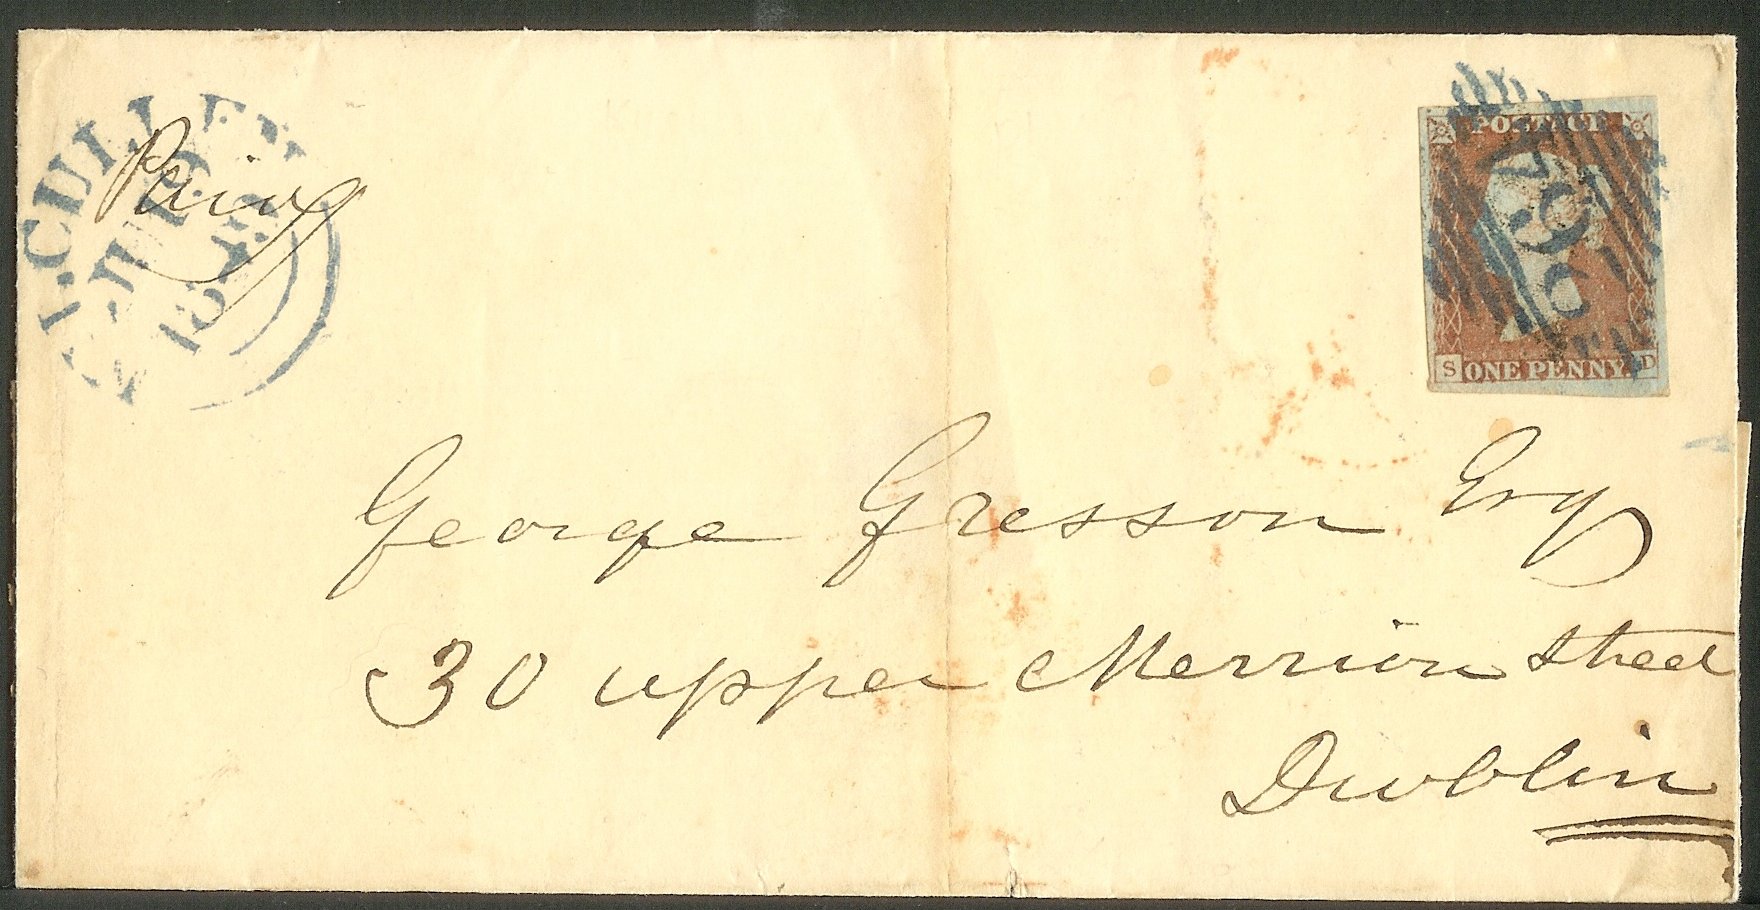 Paid
POSTAGE
S ONE PENNY. D
George Gresson Esq
30 upper Merrion Street
Dublin